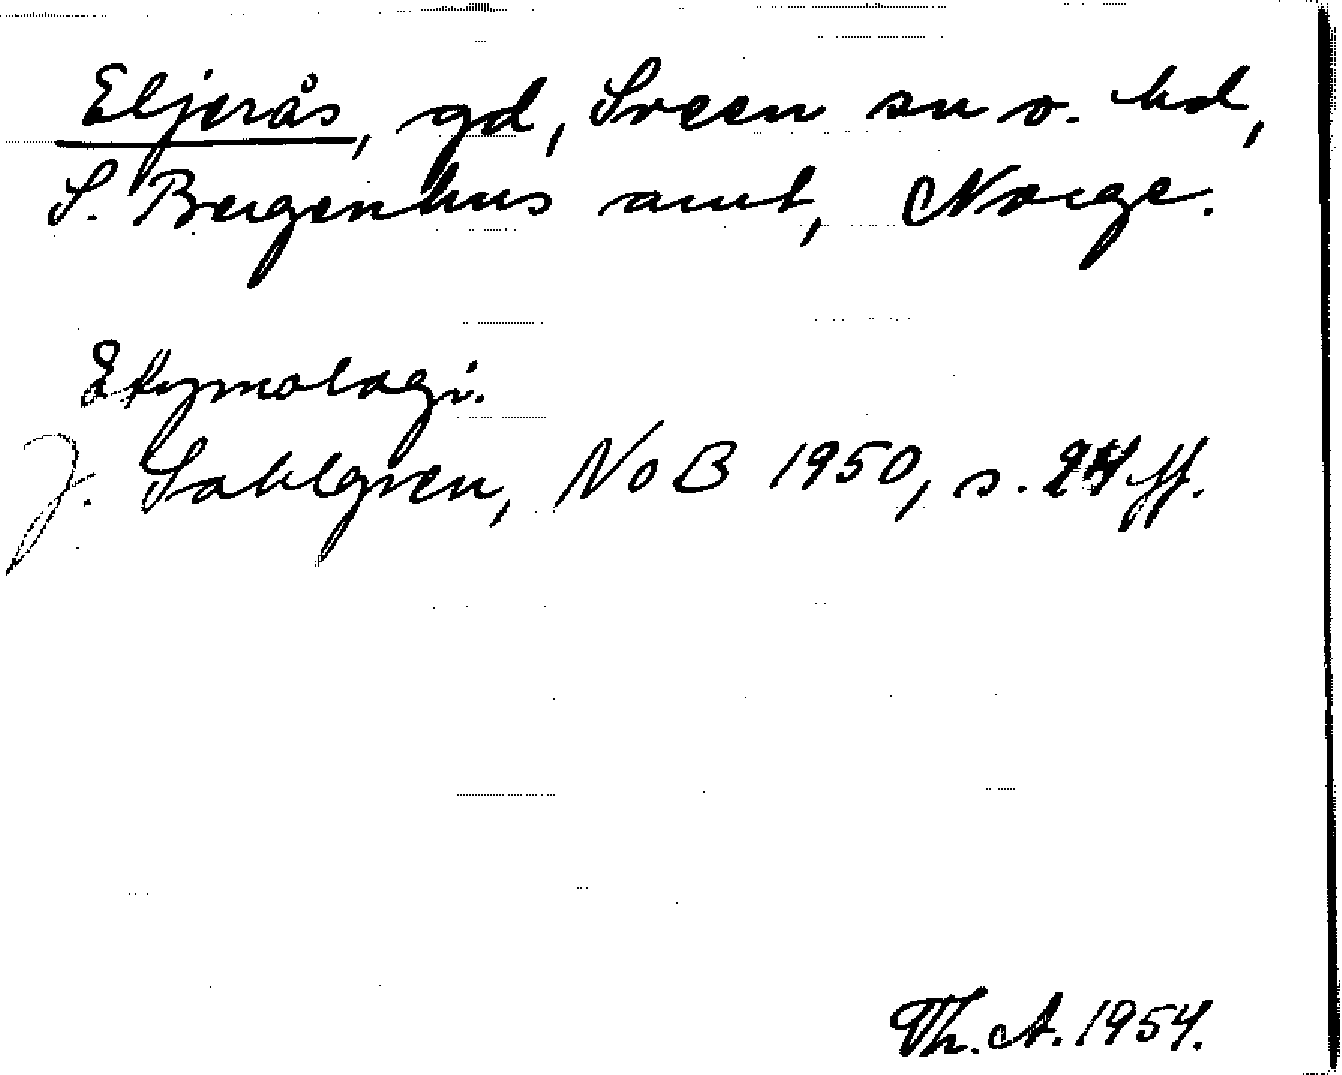 Eljerås, gd, Sveen sn o. hd,
S. Bergenhus amt, Norge.
Etymologi.
J. Sahlgren, NoB 1950, s. 24 ff.
Th. A. 1954.